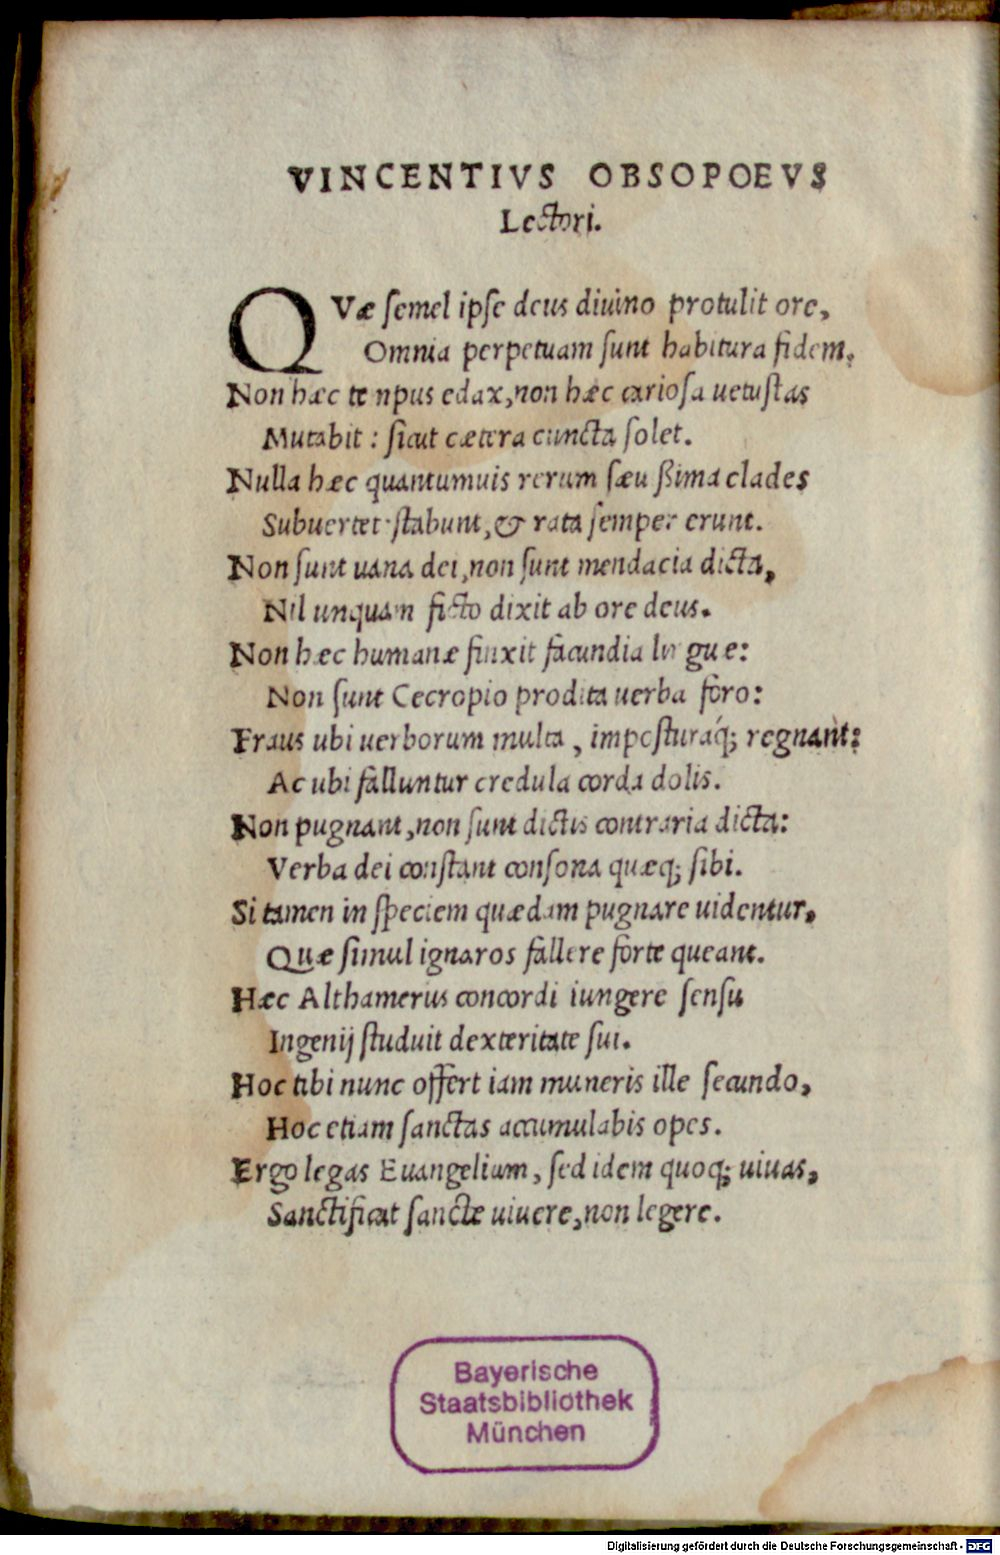 VINCENTIVS OBSOPOEVS
Lectori.
QVæ ſemel ipſe deus diuino protulit ore,
Omnia perpetuam ſunt habitura fidem.
Non hæc tempus edax, non hæc carioſa uetuſtas
Mutabit: ſicut cætera cuncta ſolet.
Nulla hæc quantumuis rerum ſæuißima clades
Subuertet. ſtabunt, & rata ſemper erunt.
Non ſunt uana dei, non ſunt mendacia dicta,
Nil unquam ficto dixit ab ore deus.
Non hæc humanæ finxit facundia linguæ:
Non ſunt Cecropio prodita uerba foro:
Fraus ubi uerborum multa, impoſturáq; regnant:
Ac ubi falluntur credula corda dolis.
Non pugnant, non ſunt dictis contraria dicta:
Verba dei conſtant conſona quæq; ſibi.
Si tamen in ſpeciem quædam pugnare uidentur,
Quæ ſimul ignaros fallere forte queant.
Hæc Althamerus concordi iungere ſenſu
Ingenij ſtuduit dexteritate ſui.
Hoc tibi nunc offert iam muneris ille ſecundo,
Hoc etiam ſanctas accumulabis opes.
Ergo legas Euangelium, ſed idem quoq; uiuas,
Sanctificat ſancte uiuere, non legere.
Bayerische
Staatsbibliothek
München
Digitalisierung gefördert durch die Deutsche Forschungsgemeinschaft - DFG